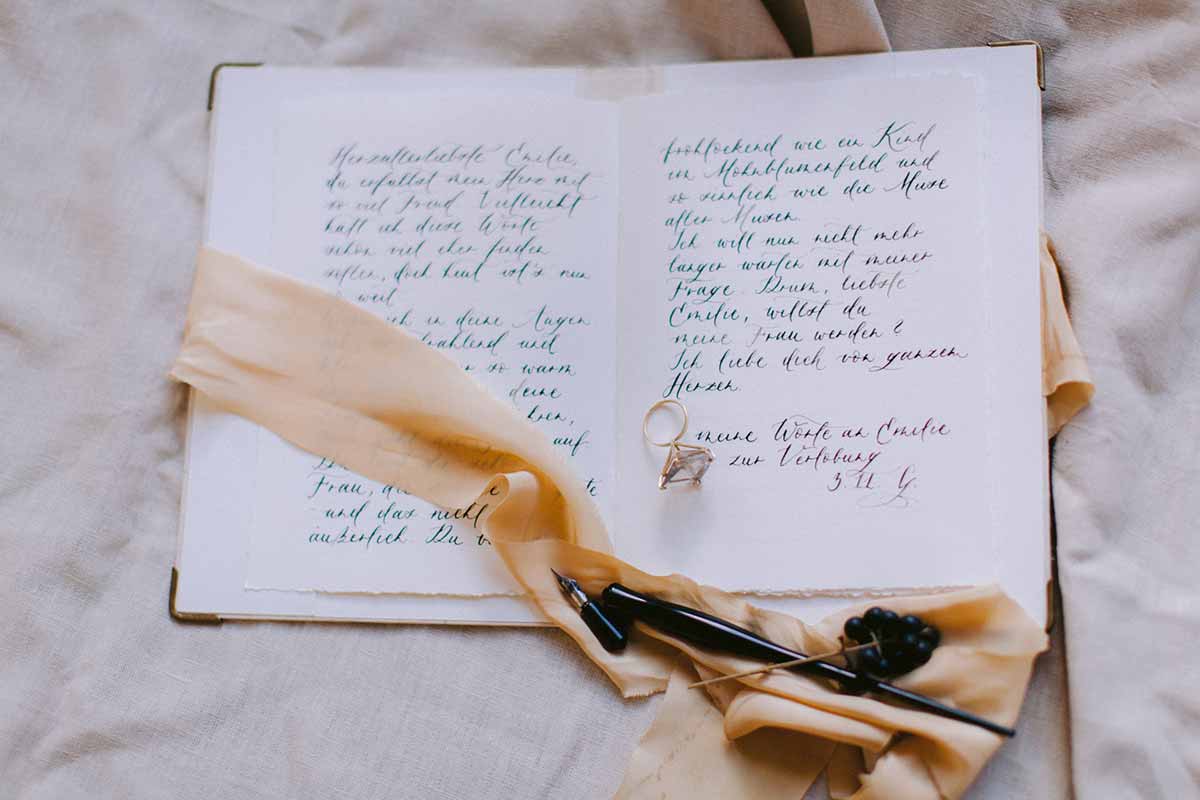 Herzallerliebste Emilie,
du erfüllst mein Herz mit
so viel Freud. Vielleicht
hätt ich diese Worte
schon viel eher finden
sollen, doch heut ist's nun
weit
in deine Augen
und
so warm
deine
auf
Frau, die
und das nicht
äußerlich. Du
frohlockend wie ein Kind
im Mohnblumenfeld und
so sinnlich wie die Muse
aller Musen.
Ich will nun nicht mehr
länger warten mit meiner
Frage. Drum, liebste
Emilie, willst du
meine Frau werden?
Ich liebe dich von ganzem
Herzen.
meine Worte an Emilie
zur Verlobung
3.11. G.